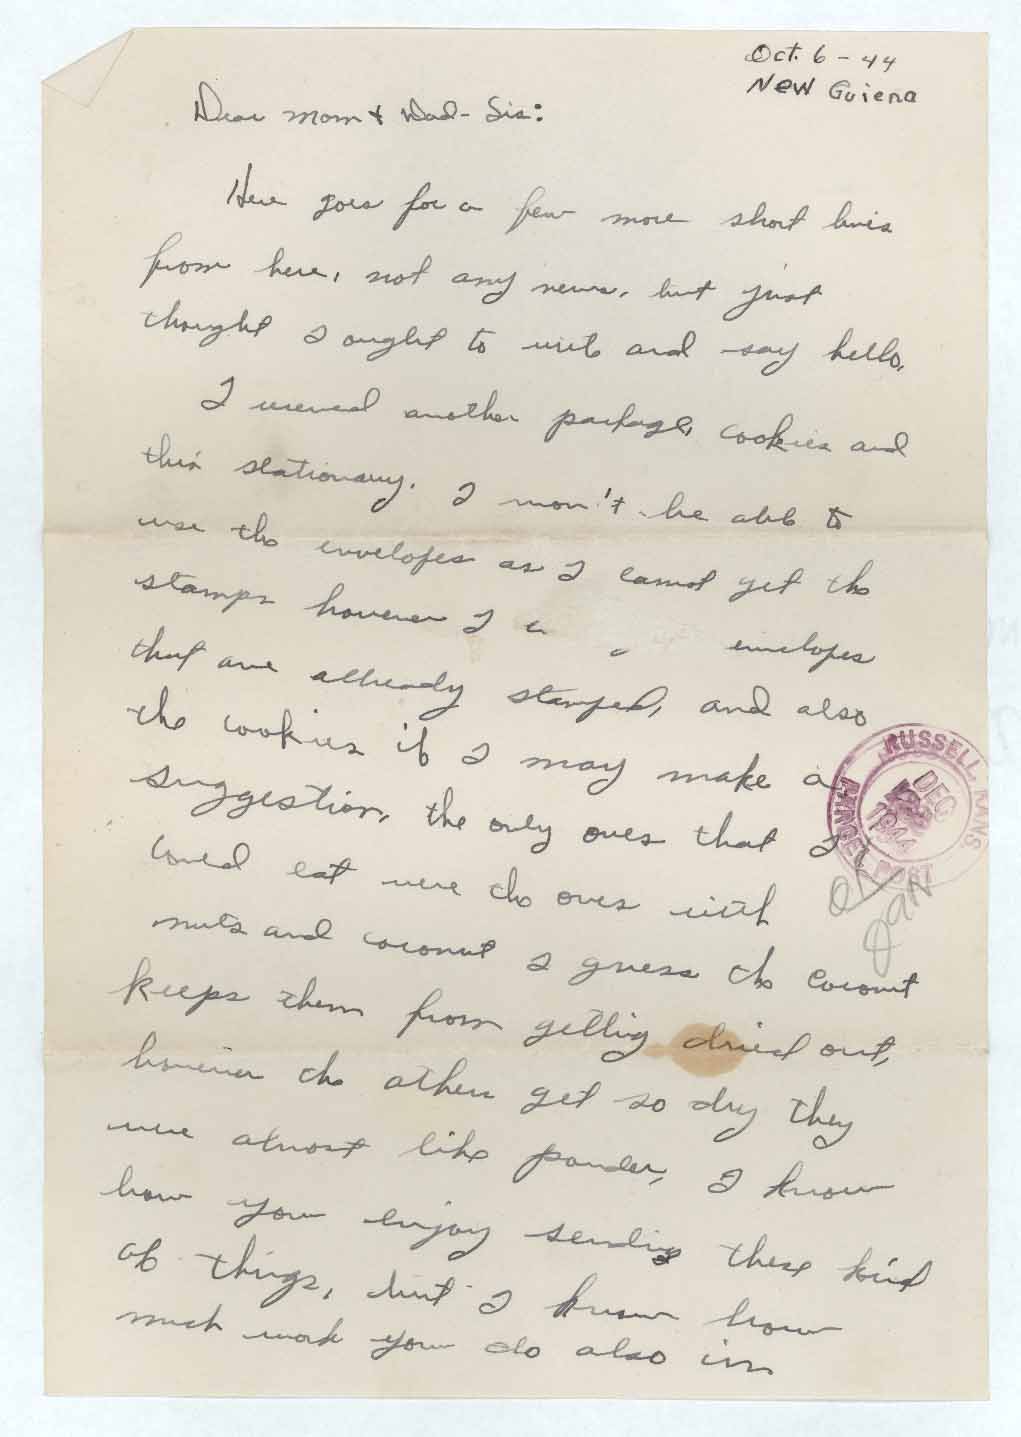 Oct. 6 - 44
New Guiena
Dear Mom & Dad - Sis:
Here goes for a few more short lines
from here, not any news, but just
thought I ought to write and say hello.
I received another package, cookies and
this stationary. I won't be able to
use the envelopes as I cannot get the
stamps however I envelopes
that are allready stamped, and also
the cookies if I may make a
suggestion, the only ones that I
could eat were the ones with
nuts and coconut I guess the coconut
keeps them from getting dried out,
however the others get so dry they
were almost like powder, I know
how you enjoy sending these kind
of things, but I know how
much work you do also in
RUSSELL, KANS.
DEC
1944
OK
Jan